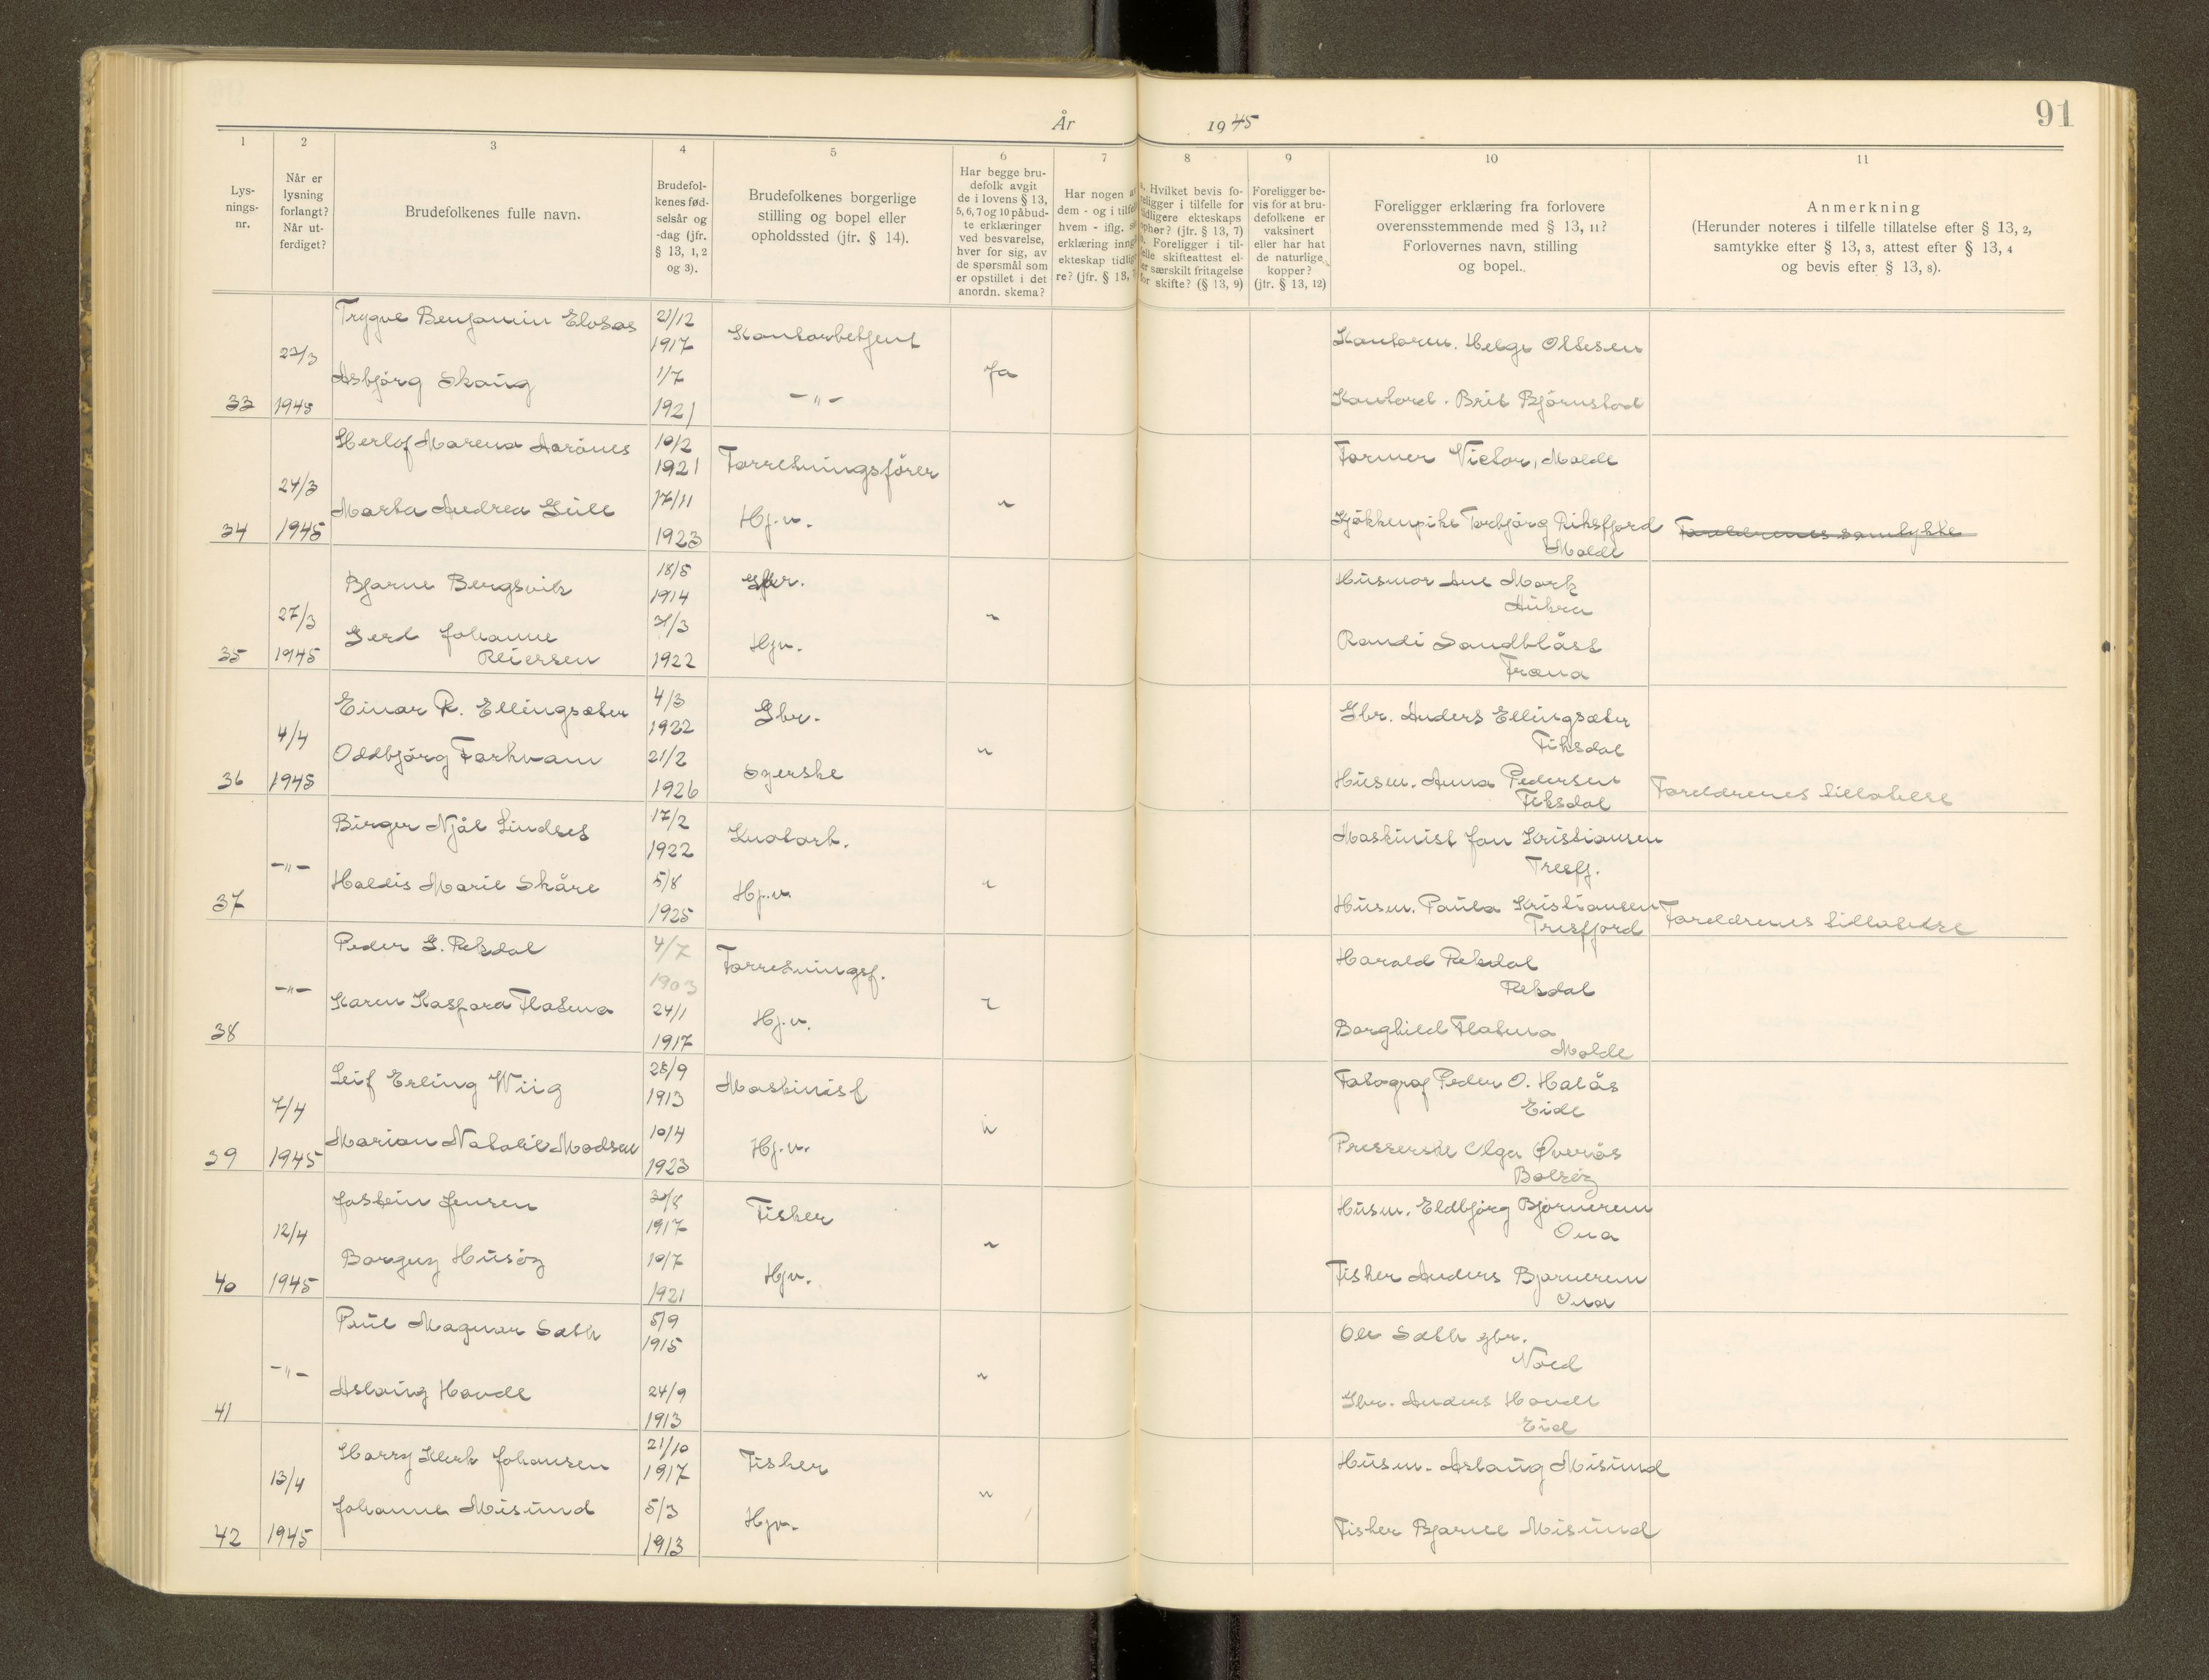 91
År 1945
1 2 3 4 5 6 7 8 9 10 11
Lys-
nings-
nr.
Når er
lysning
forlangt?
Når ut-
ferdiget?
Brudefolkenes fulle navn.
Brudefol-
kenes fød-
selsår og
-dag (jfr.
§ 13, 1, 2
og 3).
Brudefolkenes borgerlige
stilling og bopel eller
opholdssted (jfr. § 14).
Har begge bru-
defolk avgit
de i lovens § 13,
5, 6, 7 og 10 påbud-
te erklæringer
ved besvarelse,
hver for sig, av
de spørsmål som
er opstillet i det
anordn. skema?
Har nogen a
dem - og i tilfel
hvem - iflg.
erklæring inng
ekteskap tidlig
re? (jfr. § 13,
Hvilket bevis fo-
religger i tilfelle for
tidligere ekteskaps
ophør? (jfr. § 13, 7)
Foreligger i til-
felle skifteattest el-
er særskilt fritagelse
for skifte? (§ 13, 9)
Foreligger be-
vis for at bru-
defolkene er
vaksinert
eller har hat
de naturlige
kopper?
(jfr. § 13, 12)
Foreligger erklæring fra forlovere
overensstemmende med § 13, 11?
Forlovernes navn, stilling
og bopel.
Anmerkning
(Herunder noteres i tilfelle tillatelse efter § 13, 2,
samtykke efter § 13, 3, attest efter § 13, 4
og bevis efter § 13, 8).
33 1945
Trygve Benjamin 21/12 1917 Kontorbetjent
Asbjörg Skaug 1/7 1921 -"-
Ja
Helge Oltesen
Brit Björnstad
34 24/3 1945
Herlof 10/2 1921 Forretningsförer
Marta Andrea 17/11 1923 Hj.v.
"
Former Victor, Molde
Kjökkenpike Torbjörg Riksfjord
Molde
Foreldrenes samtykke
35 27/3 1945
Bjarne Bergsvik 18/5 1914
Gerd Johanne
Reiersen /3 1922 Hjv.
"
Husmor Ane Mork
Aukra
Randi Sandblåst
Fræna
36 4/4 1945
Einar R. Ellingsæter 4/3 1922 Gbr.
Oddbjörg Farkvam 21/2 1926 Syerske
"
Gbr. Anders Ellingsæter
Fiksdal
Husm. Anna Pedersen
Fiksdal
Foreldrenes tillatelse
37 -"-
Birger Njål Lindset 17/2 1922
Haldis Marie Skåre 5/8 1925 Hj.v.
"
Maskinist Jan Kristiansen
Tresfj.
Husm. Paula Kristiansen
Tresfjord
Foreldrenes tillatelse
38 -"-
Peder G. Rekdal 4/7 1903 Forretningsf.
Karen Kaspara Flatena 24/1 1917 Hj.v.
"
Harald Rekdal
Rekdal
Borghild Flatena
Molde
39 7/4 1945
Leif Erling Wiig 28/9 1913 Maskinist
Marian Natalie Madsen 10/4 1923 Hj.v.
"
Fotograf Peder O. Halås
Eide
Presserske Olga Överås
Bolsöy
40 12/4 1945
Jostein Jensen 1917 Fisker
Borguy Husöy 10/7 1921 Hjv.
"
Husm. Eldbjörg Bjørnerem
Ona
Fisker Anders Bjørnerem
Ona
41 -"-
Paul Magnar Sæth 5/9 1915
Aslaug Hovde 24/9 1913
"
Ole Sæth gbr.
Nord
Gbr. Anders Hovde
Eid
42 13/4 1945
Harry Klerk Johansen 21/10 1917 Fisker
Johanne Misund 5/3 1913 Hjv.
"
Husm. Aslaug Misund
Fisker Bjarne Misund